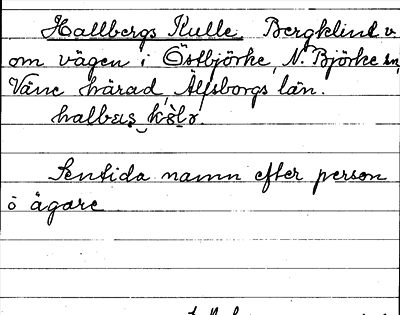 Hallbergs Kulle. Bergklint v.
om vägen i Östbjörke, N. Björke sn,
Väne härad, Älfsborgs län.
Sentida namn efter person
ö ägare